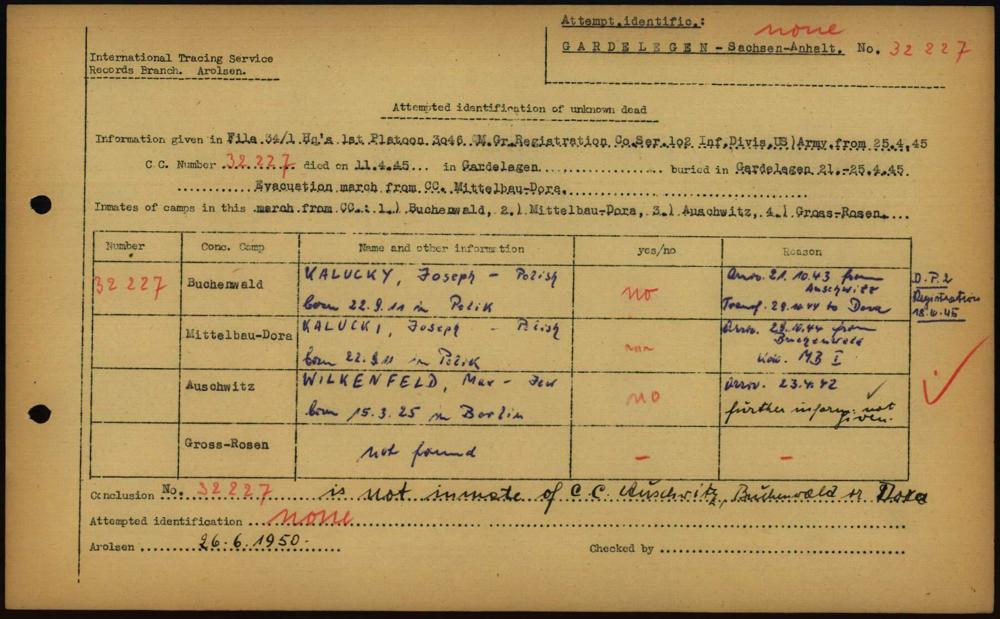 Attempt.identific.:
none
GARDELEGEN - Sachsen-Anhalt. No. 32 227
International Tracing Service
Records Branch. Arolsen.
Attempted identification of unknown dead
Information given in File 34/1 Hq's 1st Platoon 3046 QM.Gr.Registration Co.Ser.102 Inf.Divis.US)Army.from 25.4.45
C.C. Number 32 227 died on 11.4.45 in Gardelagen buried in Gardelagen 21.-25.4.45.
Evacuation march from CC. Mittelbau-Dora.
Inmates of camps in this march from CC.: 1.) Buchenwald, 2.) Mittelbau-Dora, 3.) Auschwitz, 4.) Gross-Rosen.
Number Conc. Camp Name and other information yes/no Reason
32 227 Buchenwald KALUCKY, Joseph - Polish
born 22.9.11 in Polik
no
Arriv. 21.10.43 from
Auschwitz
Transf. 29.10.44 to Dora
D.P.2
Registration
Mittelbau-Dora KALUCKI, Joseph - Polish
born 22.9.11 in Polik
Arriv. 29.10.44 from
Buchenwald
MB I
Auschwitz WILKENFELD, Max - Jew
born 15.3.25 in Berlin
no
Arriv. 23.4.42
further inform. not
given.
Gross-Rosen not found - -
Conclusion No. 32 227 is not inmate of C.C. Auschwitz, Buchenwald or Dora
Attempted identification none
Arolsen, 26.6.1950. Checked by